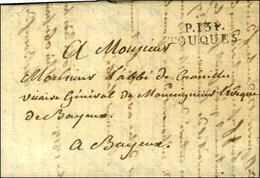 P.13P.
TOUQUES
A Monsieur
Monsieur l'abbé de
vicaire Général de Monseigneur l'évêque
de Bayeux.
A Bayeux.